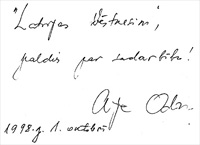 "Latvijas Vēstnesim",
paldies par sadarbību!
1998.g. 1. oktobrī